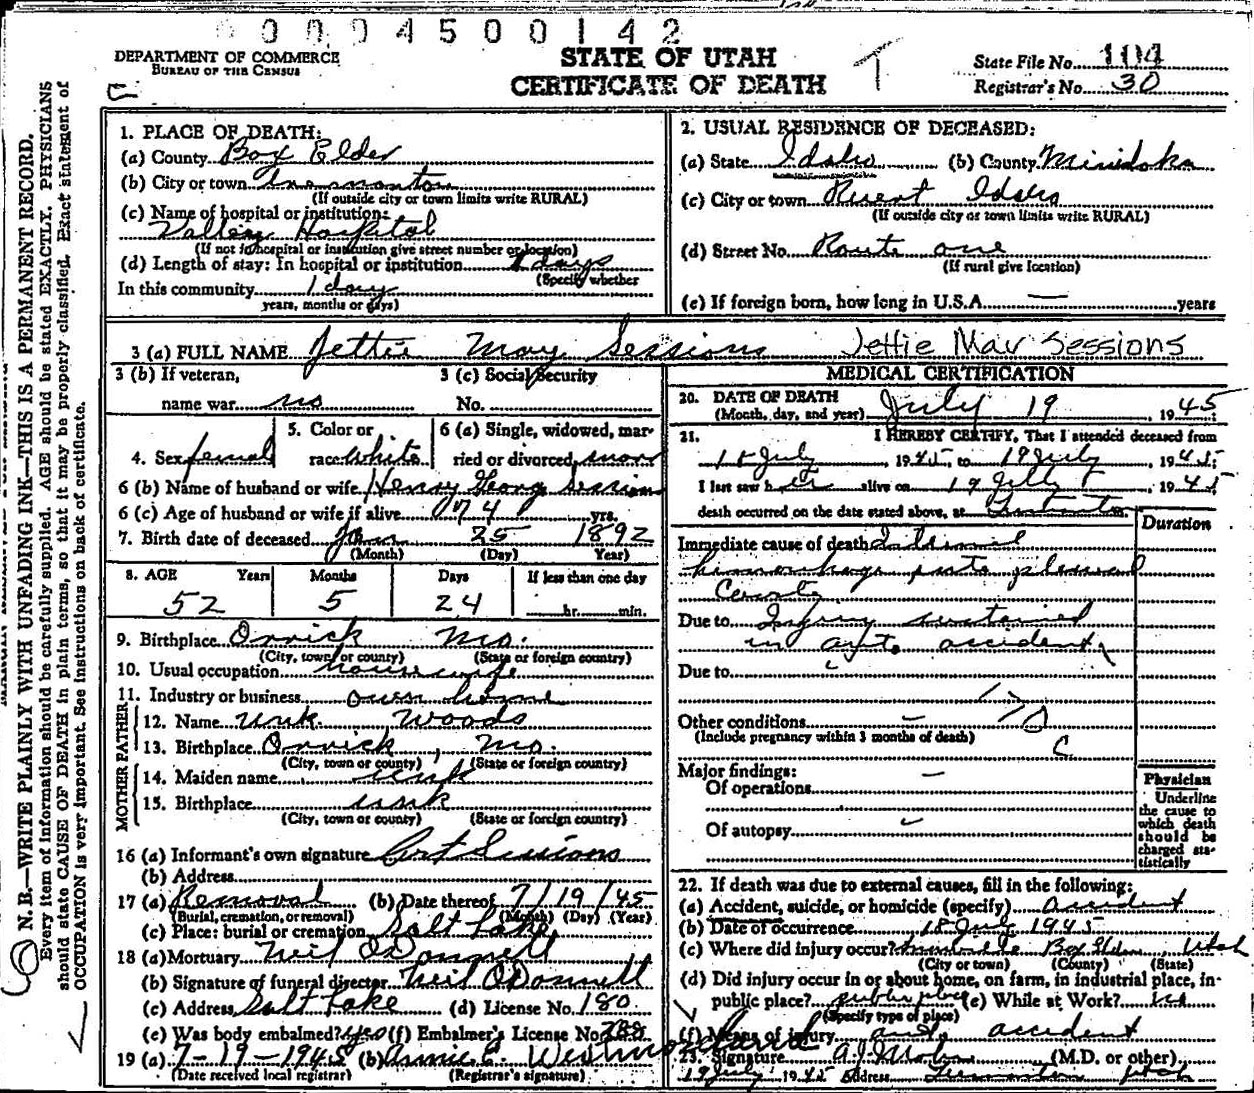 0 0 0 9 4 5 0 0 1 4 2
DEPARTMENT OF COMMERCE
BUREAU OF THE CENSUS
STATE OF UTAH
CERTIFICATE OF DEATH
T
State File No. 104
Registrar's No. 30
N. B.—WRITE PLAINLY WITH UNFADING INK—THIS IS A PERMANENT RECORD.
Every item of information should be carefully supplied. AGE should be stated EXACTLY. PHYSICIANS
should state CAUSE OF DEATH in plain terms, so that it may be properly classified. Exact statement of
OCCUPATION is very important. See instructions on back of certificate.
1. PLACE OF DEATH:
(a) County Box Elder
(b) City or town Tremonton
(If outside city or town limits write RURAL)
(c) Name of hospital or institution:
Valley Hospital
(If not in hospital or institution give street number or location)
(d) Length of stay: In hospital or institution 1 days
(Specify whether
In this community 1 day
years, months or days)
2. USUAL RESIDENCE OF DECEASED:
(a) State Idaho (b) County Minidoka
(c) City or town Rupert Idaho
(If outside city or town limits write RURAL)
(d) Street No. Route one
(If rural give location)
(e) If foreign born, how long in U.S.A. — years
3 (a) FULL NAME Jettie May Sessions Jettie May Sessions
3 (b) If veteran, 3 (c) Social Security
name war no No.
4. Sex female 5. Color or race White 6 (a) Single, widowed, married or divorced
6 (b) Name of husband or wife Henry Georg Sessions
6 (c) Age of husband or wife if alive 74 yrs.
7. Birth date of deceased Jan 25 1892
(Month) (Day) Year)
8. AGE Years Months Days If less than one day
52 5 24 hr. min.
9. Birthplace Orrick Mo.
(City, town or county) (State or foreign country)
10. Usual occupation housewife
11. Industry or business own home
FATHER
12. Name unk. Woods
13. Birthplace Orrick, Mo.
(City, town or county) (State or foreign country)
MOTHER
14. Maiden name unk
15. Birthplace unk
(City, town or county) (State or foreign country)
16 (a) Informant's own signature Art Sessions
(b) Address
17 (a) Removal (b) Date thereof 7/19/45
(Burial, cremation, or removal) (Month) (Day) (Year)
(c) Place: burial or cremation Salt Lake
18 (a) Mortuary Neil O'Donnell
(b) Signature of funeral director Neil O'Donnell
(c) Address Salt Lake (d) License No. 180
(e) Was body embalmed? yes (f) Embalmer's License No.
19 (a) 7-19-1945 (b) Annie E.
(Date received local registrar) (Registrar's signature)
MEDICAL CERTIFICATION
20. DATE OF DEATH
(Month, day, and year) July 19, 1945
21. I HEREBY CERTIFY, That I attended deceased from
18 July, 1945, to 19 July, 1945;
I last saw her alive on 19 July 1945
death occurred on the date stated above, at
Duration
Immediate cause of death Internal
hemorrhage into pleural
Cavity
Due to Injury sustained
in auto accident
Due to
Other conditions —
(Include pregnancy within 3 months of death)
170
C
Major findings:
Of operations —
Of autopsy —
Physician
Underline
the cause to
which death
should be
charged sta-
tistically
22. If death was due to external causes, fill in the following:
(a) Accident, suicide, or homicide (specify) accident
(b) Date of occurrence 18 July 1945
(c) Where did injury occur? Box Elder, Utah
(City or town) (County) (State)
(d) Did injury occur in or about home, on farm, in industrial place, in-
public place? public place (e) While at Work? no
(Specify type of place)
(f) Means of injury auto accident
23. Signature (M.D. or other)
19 July, 1945 Address Tremonton Utah